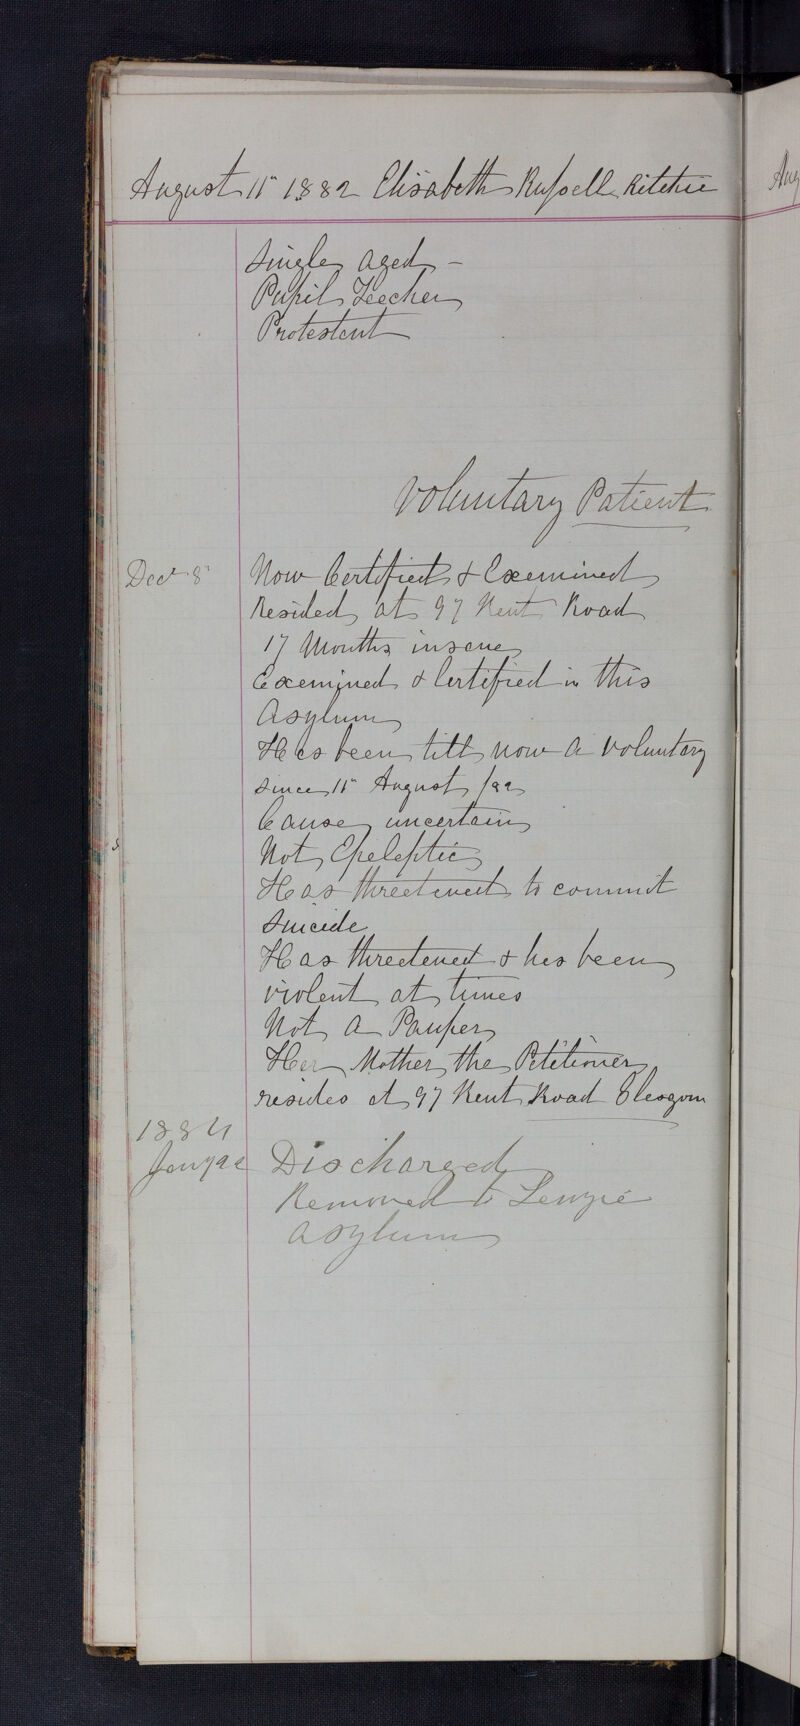 August 11th 1882 Elisabeth Russell Ritchie
Aug
Single aged -
Pupil Teecher
Protestant
Voluntary Patient
Decr 8th Now Certified & Examined
Resided at 97 Kent Road
17 Months insane
Examined & Certified in this
Asylum
Has been till now a voluntary
since 11th August /82
Cause uncertain
Not Epeleptic
Has threetened to commit
Suicide
Has threetened & has been
violent at times
Not a Pauper
Her Mother the Petitioner
resides at 97 Kent Road Glasgow
1884
Jany 22 Discharged
Removed to Lenzie
Asylum